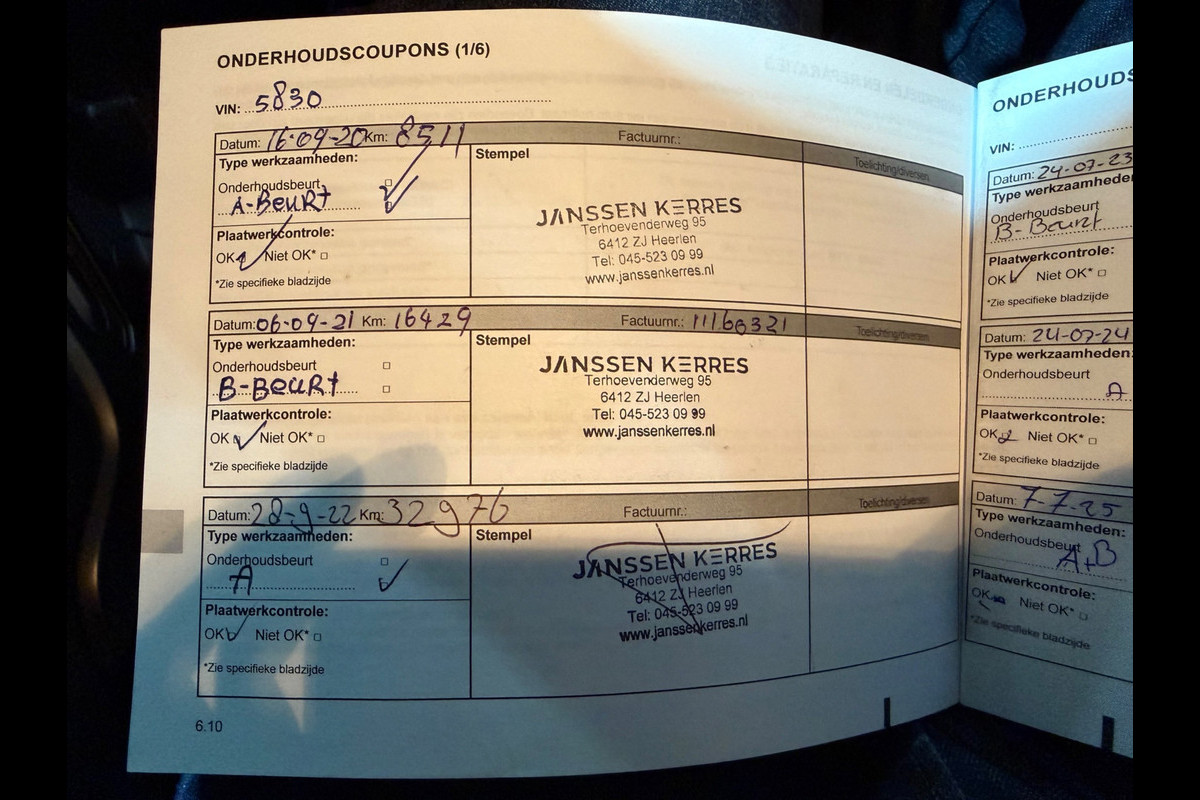 ONDERHOUDSCOUPONS (1/6)
VIN: 5830
Datum: 16-09-20 Km: 8511 Factuurnr.: Toelichting/diversen
Type werkzaamheden: Stempel
Onderhoudsbeurt
A-BeuRt
Plaatwerkcontrole:
OK Niet OK*
*Zie specifieke bladzijde
JANSSEN KERRES
Terhoevenderweg 95
6412 ZJ Heerlen
Tel: 045-523 09 99
www.janssenkerres.nl
Datum: 06-09-21 Km: 16429 Factuurnr.: Toelichting/diversen
Type werkzaamheden: Stempel
Onderhoudsbeurt
B-BeuRt
Plaatwerkcontrole:
OK Niet OK*
*Zie specifieke bladzijde
JANSSEN KERRES
Terhoevenderweg 95
6412 ZJ Heerlen
Tel: 045-523 09 99
www.janssenkerres.nl
Datum: 28-9-22 Km: 32976 Factuurnr.: Toelichting/diversen
Type werkzaamheden: Stempel
Onderhoudsbeurt
A
Plaatwerkcontrole:
OK Niet OK*
*Zie specifieke bladzijde
JANSSEN KERRES
Terhoevenderweg 95
6412 ZJ Heerlen
Tel: 045-523 09 99
www.janssenkerres.nl
6.10
ONDERHOUDS
VIN:
Datum: 24-07-23
Type werkzaamheden
Onderhoudsbeurt
B-Beurt
Plaatwerkcontrole:
OK Niet OK*
*Zie specifieke bladzijde
Datum: 24-07-24
Type werkzaamheden:
Onderhoudsbeurt
A
Plaatwerkcontrole:
OK Niet OK*
*Zie specifieke bladzijde
Datum: 7-7-25
Type werkzaamheden:
Onderhoudsbeurt
A+B
Plaatwerkcontrole:
OK Niet OK*
*Zie specifieke bladzijde